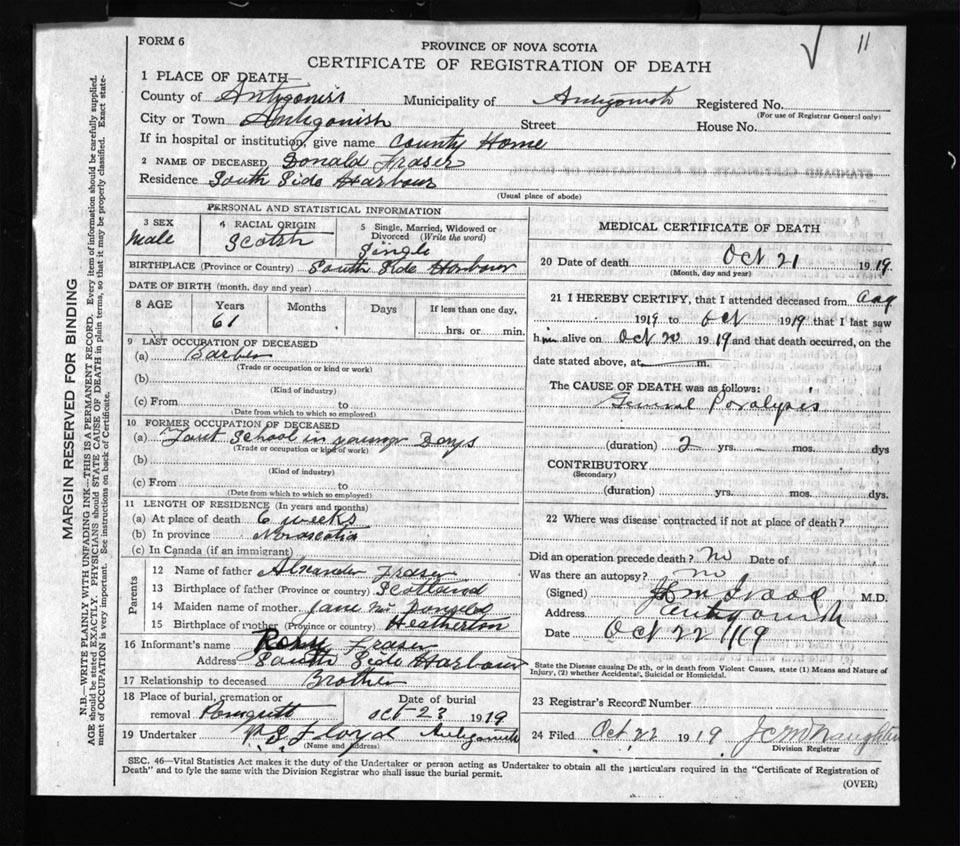 11
FORM 6
PROVINCE OF NOVA SCOTIA
CERTIFICATE OF REGISTRATION OF DEATH
1 PLACE OF DEATH—
County of Antigonish Municipality of Antigonish Registered No.
(For use of Registrar General only)
City or Town Antigonish Street House No.
If in hospital or institution, give name County Home
2 NAME OF DECEASED Donald Fraser
Residence South Side Harbour
(Usual place of abode)
PERSONAL AND STATISTICAL INFORMATION
3 SEX
Male
4 RACIAL ORIGIN
Scotch
5 Single, Married, Widowed or
Divorced (Write the word)
Single
BIRTHPLACE (Province or Country) South Side Harbour
DATE OF BIRTH (month, day and year)
8 AGE Years Months Days If less than one day,
61 hrs. or min.
9 LAST OCCUPATION OF DECEASED
(a) Barber
(Trade or occupation or kind or work)
(b)
(Kind of industry)
(c) From to
(Date from which to which so employed)
10 FORMER OCCUPATION OF DECEASED
(a) Taut School in younger Days
(Trade or occupation or kind of work)
(b)
(Kind of industry)
(c) From to
(Date from which to which so employed)
11 LENGTH OF RESIDENCE (In years and months)
(a) At place of death 6 weeks
(b) In province Novascotia
(c) In Canada (if an immigrant)
Parents
12 Name of father Alexander Fraser
13 Birthplace of father (Province or country) Scotland
14 Maiden name of mother Jane
15 Birthplace of mother (Province or country) Heatherton
16 Informant's name Fraser
Address South Side Harbour
17 Relationship to deceased Brother
18 Place of burial, cremation or
removal
Date of burial
Oct 23 1919
19 Undertaker Floyd Antigonish
(Name and Address)
MEDICAL CERTIFICATE OF DEATH
20 Date of death Oct 21 1919.
(Month, day and year)
21 I HEREBY CERTIFY, that I attended deceased from Aug
1919 to Oct 1919 that I last saw
him alive on Oct 20 1919 and that death occurred, on the
date stated above, at m.
The CAUSE OF DEATH was as follows:
General Paralysis
(duration) 2 yrs. mos. dys
CONTRIBUTORY
(Secondary)
(duration) yrs. mos. dys.
22 Where was disease contracted if not at place of death?
Did an operation precede death? No Date of
Was there an autopsy? no
(Signed) M.D.
Address Antigonish
Date Oct 22 1919
State the Disease causing Death, or in death from Violent Causes, state (1) Means and Nature of
Injury, (2) whether Accidental, Suicidal or Homicidal.
23 Registrar's Record Number
24 Filed Oct 22 1919
Division Registrar
SEC. 46—Vital Statistics Act makes it the duty of the Undertaker or person acting as Undertaker to obtain all the particulars required in the "Certificate of Registration of
Death" and to fyle the same with the Division Registrar who shall issue the burial permit.
(OVER)
MARGIN RESERVED FOR BINDING
N.B.—WRITE PLAINLY WITH UNFADING INK—THIS IS A PERMANENT RECORD. Every item of information should be carefully supplied.
AGE should be stated EXACTLY. PHYSICIANS should STATE CAUSE OF DEATH in plain terms, so that it may be properly classified. Exact state-
ment of OCCUPATION is very important. See instructions on back of Certificate.